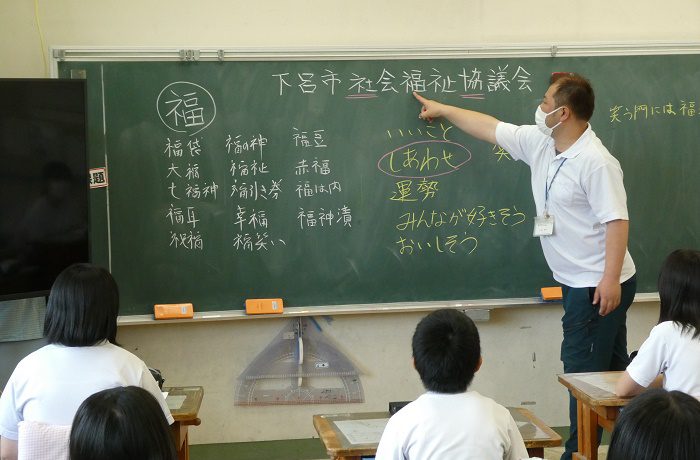 下呂市社会福祉協議会
福
福袋 福の神 福豆
大福 福祉 赤福
七福神 福引き券 福は内
福耳 幸福 福神漬
祝福 福笑い
いいこと
しあわせ
運勢
みんなが好きそう
おいしそう
笑う門には福
題